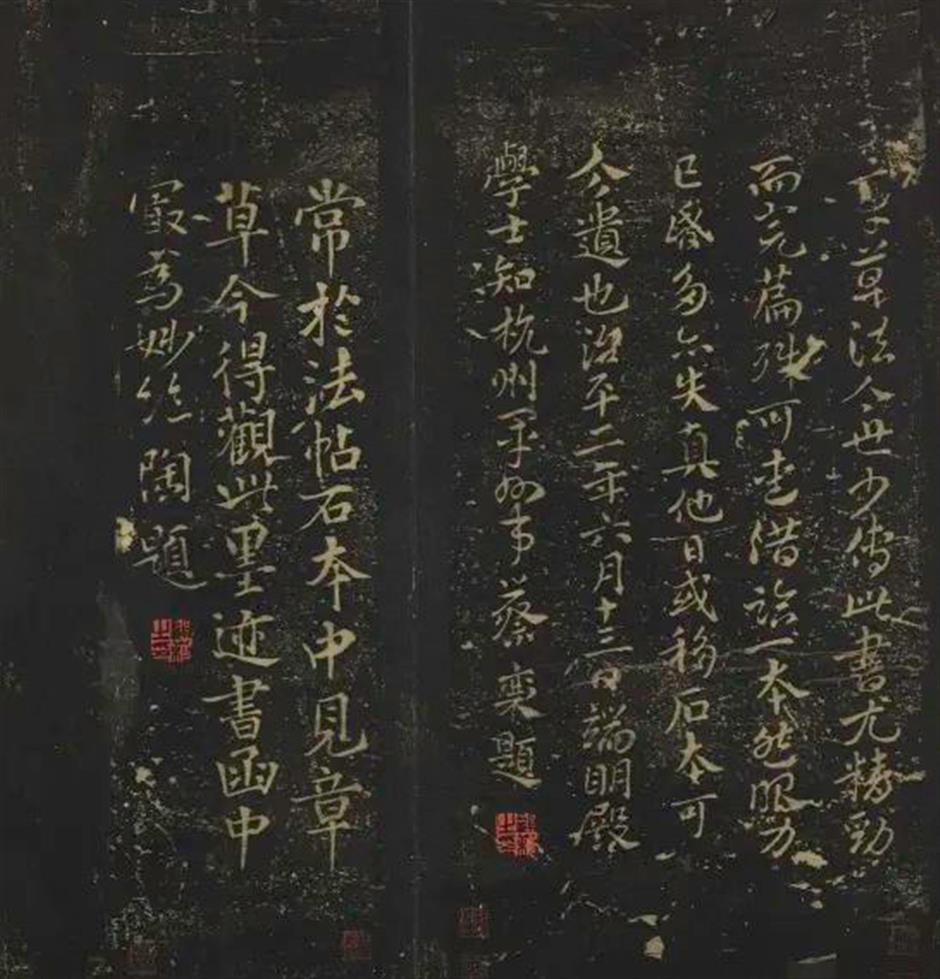 章草法今世少傳此書尤精勁
而完篇殊可愛借臨一本然眼力
已昏多亦失真他日或移石本可
今遺也治平二年六月十三日端明殿
學士知杭州軍州事蔡襄題
常於法帖石本中見章
草今得觀此墨迹書函中
最為妙絶陶題